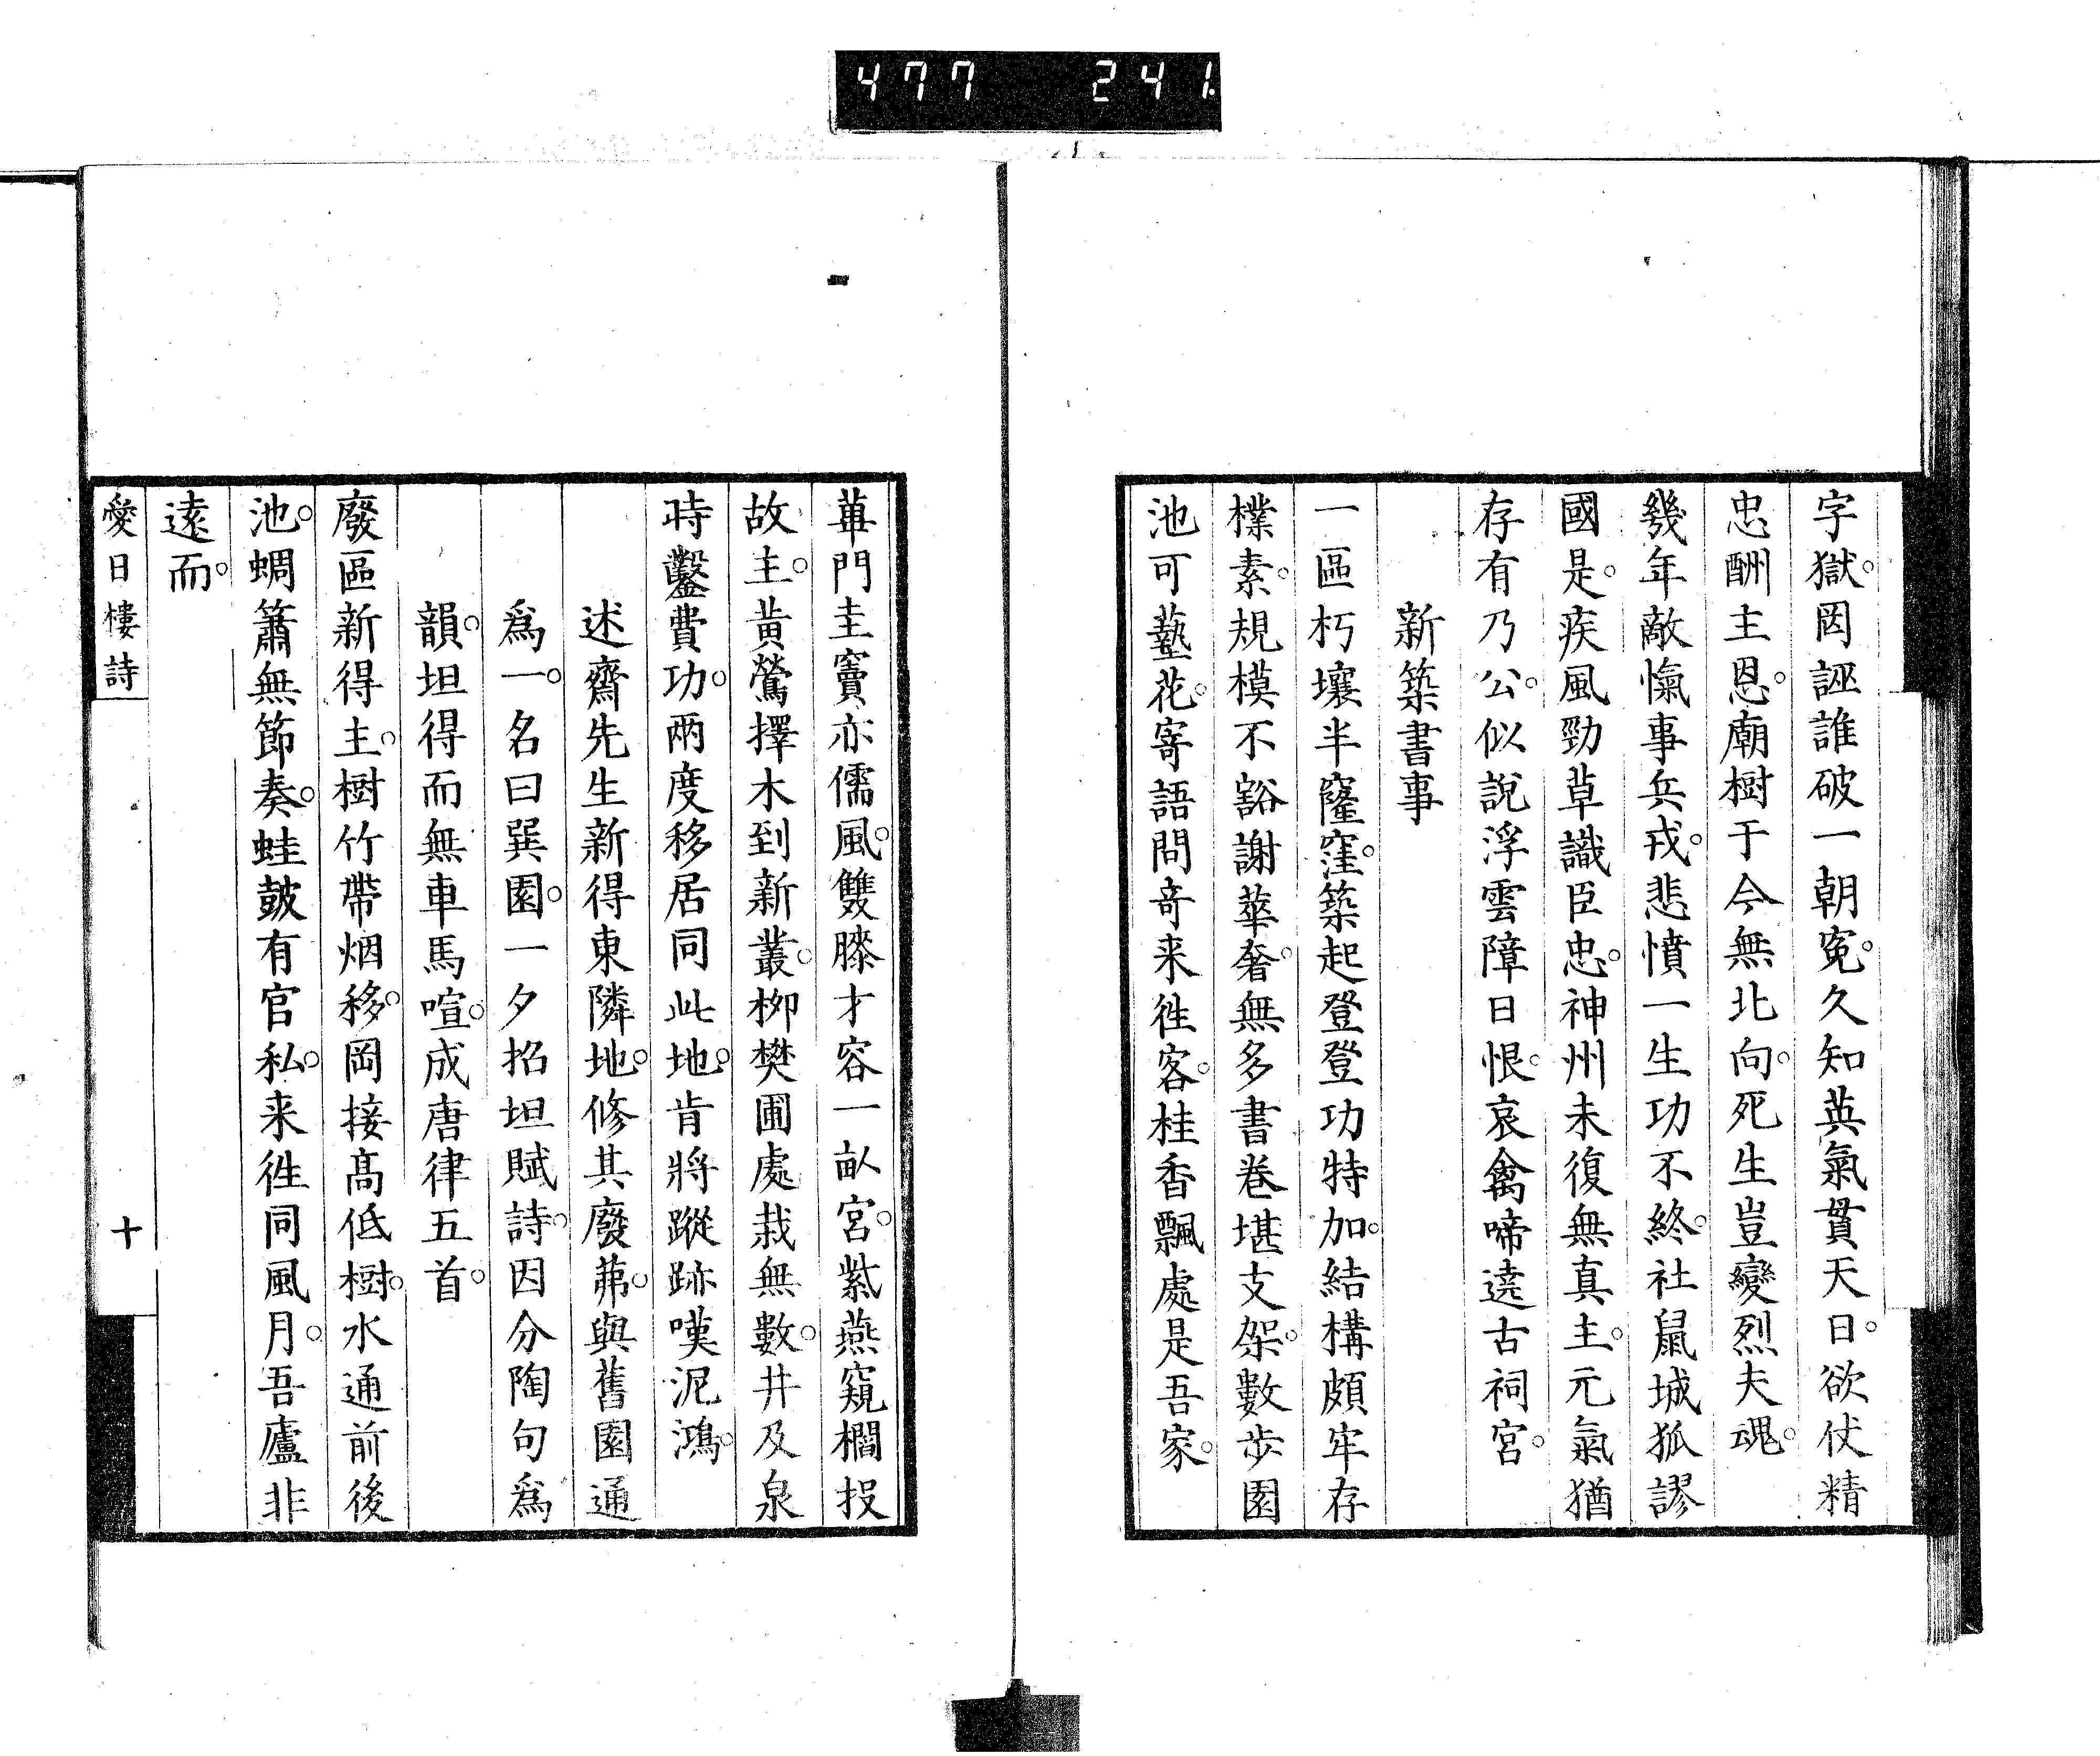 477 241.
字獄。罔誣誰破一朝冤。久知英氣貫天日。欲仗精
忠酬主恩。廟樹于今無北向。死生豈變烈夫魂。
幾年敵愾事兵戎。悲憤一生功不終。社鼠城狐謬
國是。疾風勁草識臣忠。神州未復無真主。元氣猶
存有乃公。似說浮雲障日恨。哀禽啼遶古祠宮。
新築書事
一區朽壤半窿窪。築起登登功特加。結構頗牢存
樸素。規模不豁謝華奢。無多書卷堪支架。數步園
池可藝花。寄語問奇来徃客。桂香飄處是吾家。
蓽門圭竇亦儒風。雙膝才容一畝宮。紫燕窺櫩投
故主。黄鶯擇木到新叢。栁樊圃處栽無數。井及泉
時鑿費功。兩度移居同此地。肯將蹤跡嘆泥鴻。
述齋先生新得東隣地。修其廢茀。與舊園通
爲一。名曰巽園。一夕招坦賦詩。因分陶句爲
韻。坦得而無車馬喧。成唐律五首。
廢區新得主。樹竹帶烟移。岡接髙低樹。水通前後
池。蜩簫無節奏。蛙皷有官私。来徃同風月。吾廬非
遠而。
愛日樓詩
十